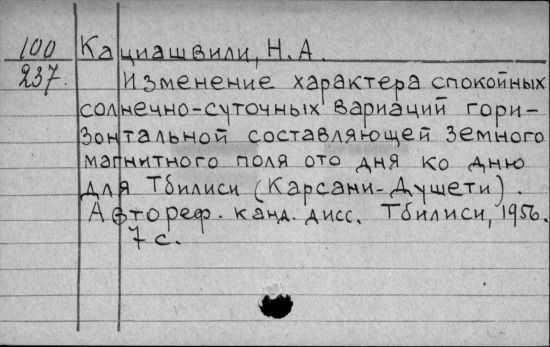 100 Кациашвили, Н.А.
237. Изменение характера спокойных
солнечно-суточных вариаций гори-
зонтальной составляющей земного
магнитного поля ото дня ко дню
для Тбилиси (Карсани-Душети).
Автореф. канд. дисс. Тбилиси, 1956.
7 с.